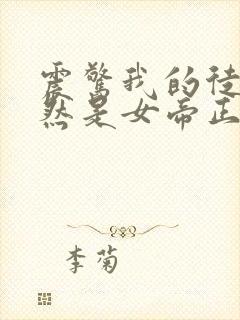 震惊我的徒
然是女帝正
李菊